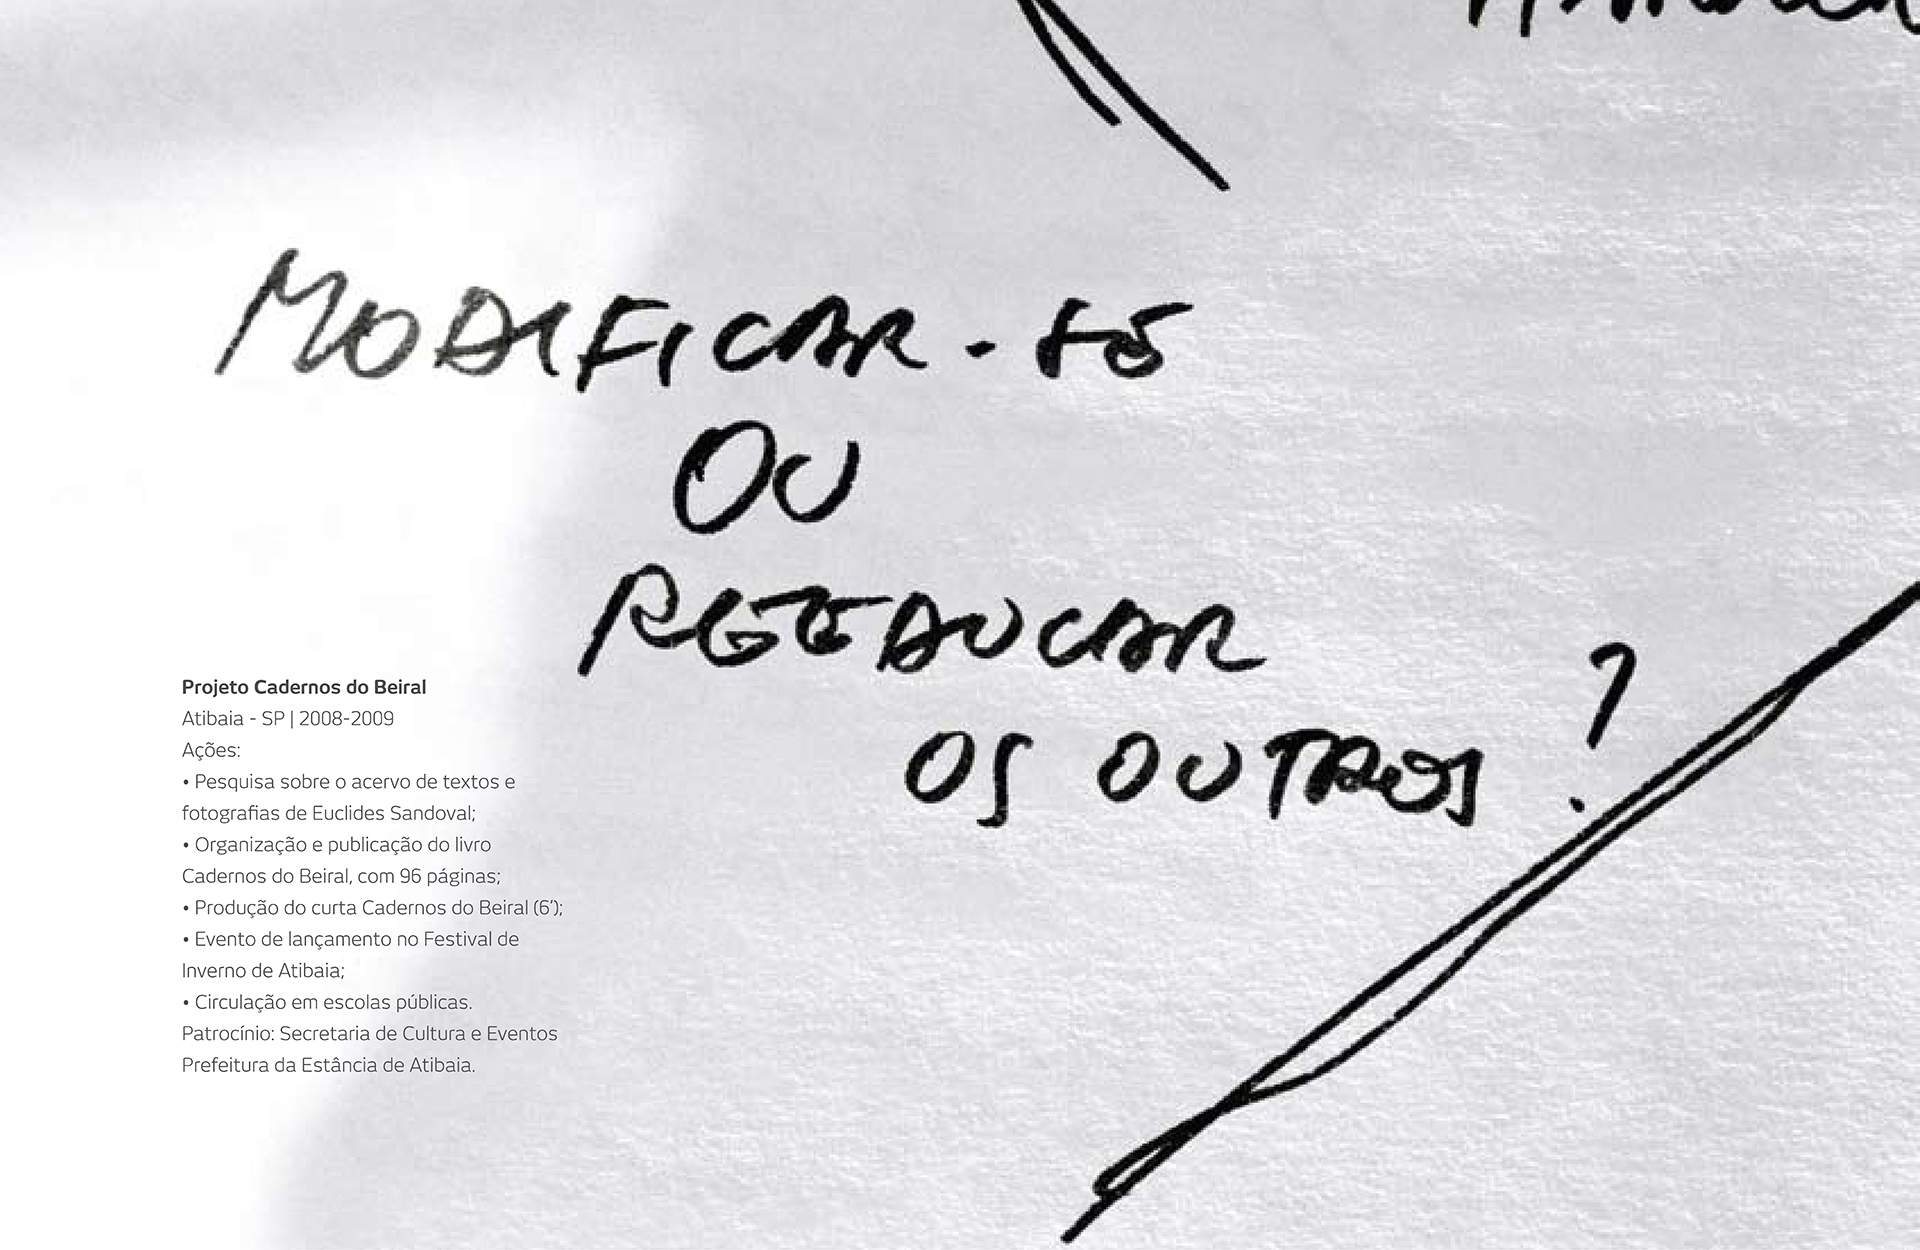 MODIFICAR-SE
OU
REEDUCAR
OS OUTROS?
Projeto Cadernos do Beiral
Atibaia - SP | 2008-2009
Ações:
• Pesquisa sobre o acervo de textos e
fotografias de Euclides Sandoval;
• Organização e publicação do livro
Cadernos do Beiral, com 96 páginas;
• Produção do curta Cadernos do Beiral (6’);
• Evento de lançamento no Festival de
Inverno de Atibaia;
• Circulação em escolas públicas.
Patrocínio: Secretaria de Cultura e Eventos
Prefeitura da Estância de Atibaia.